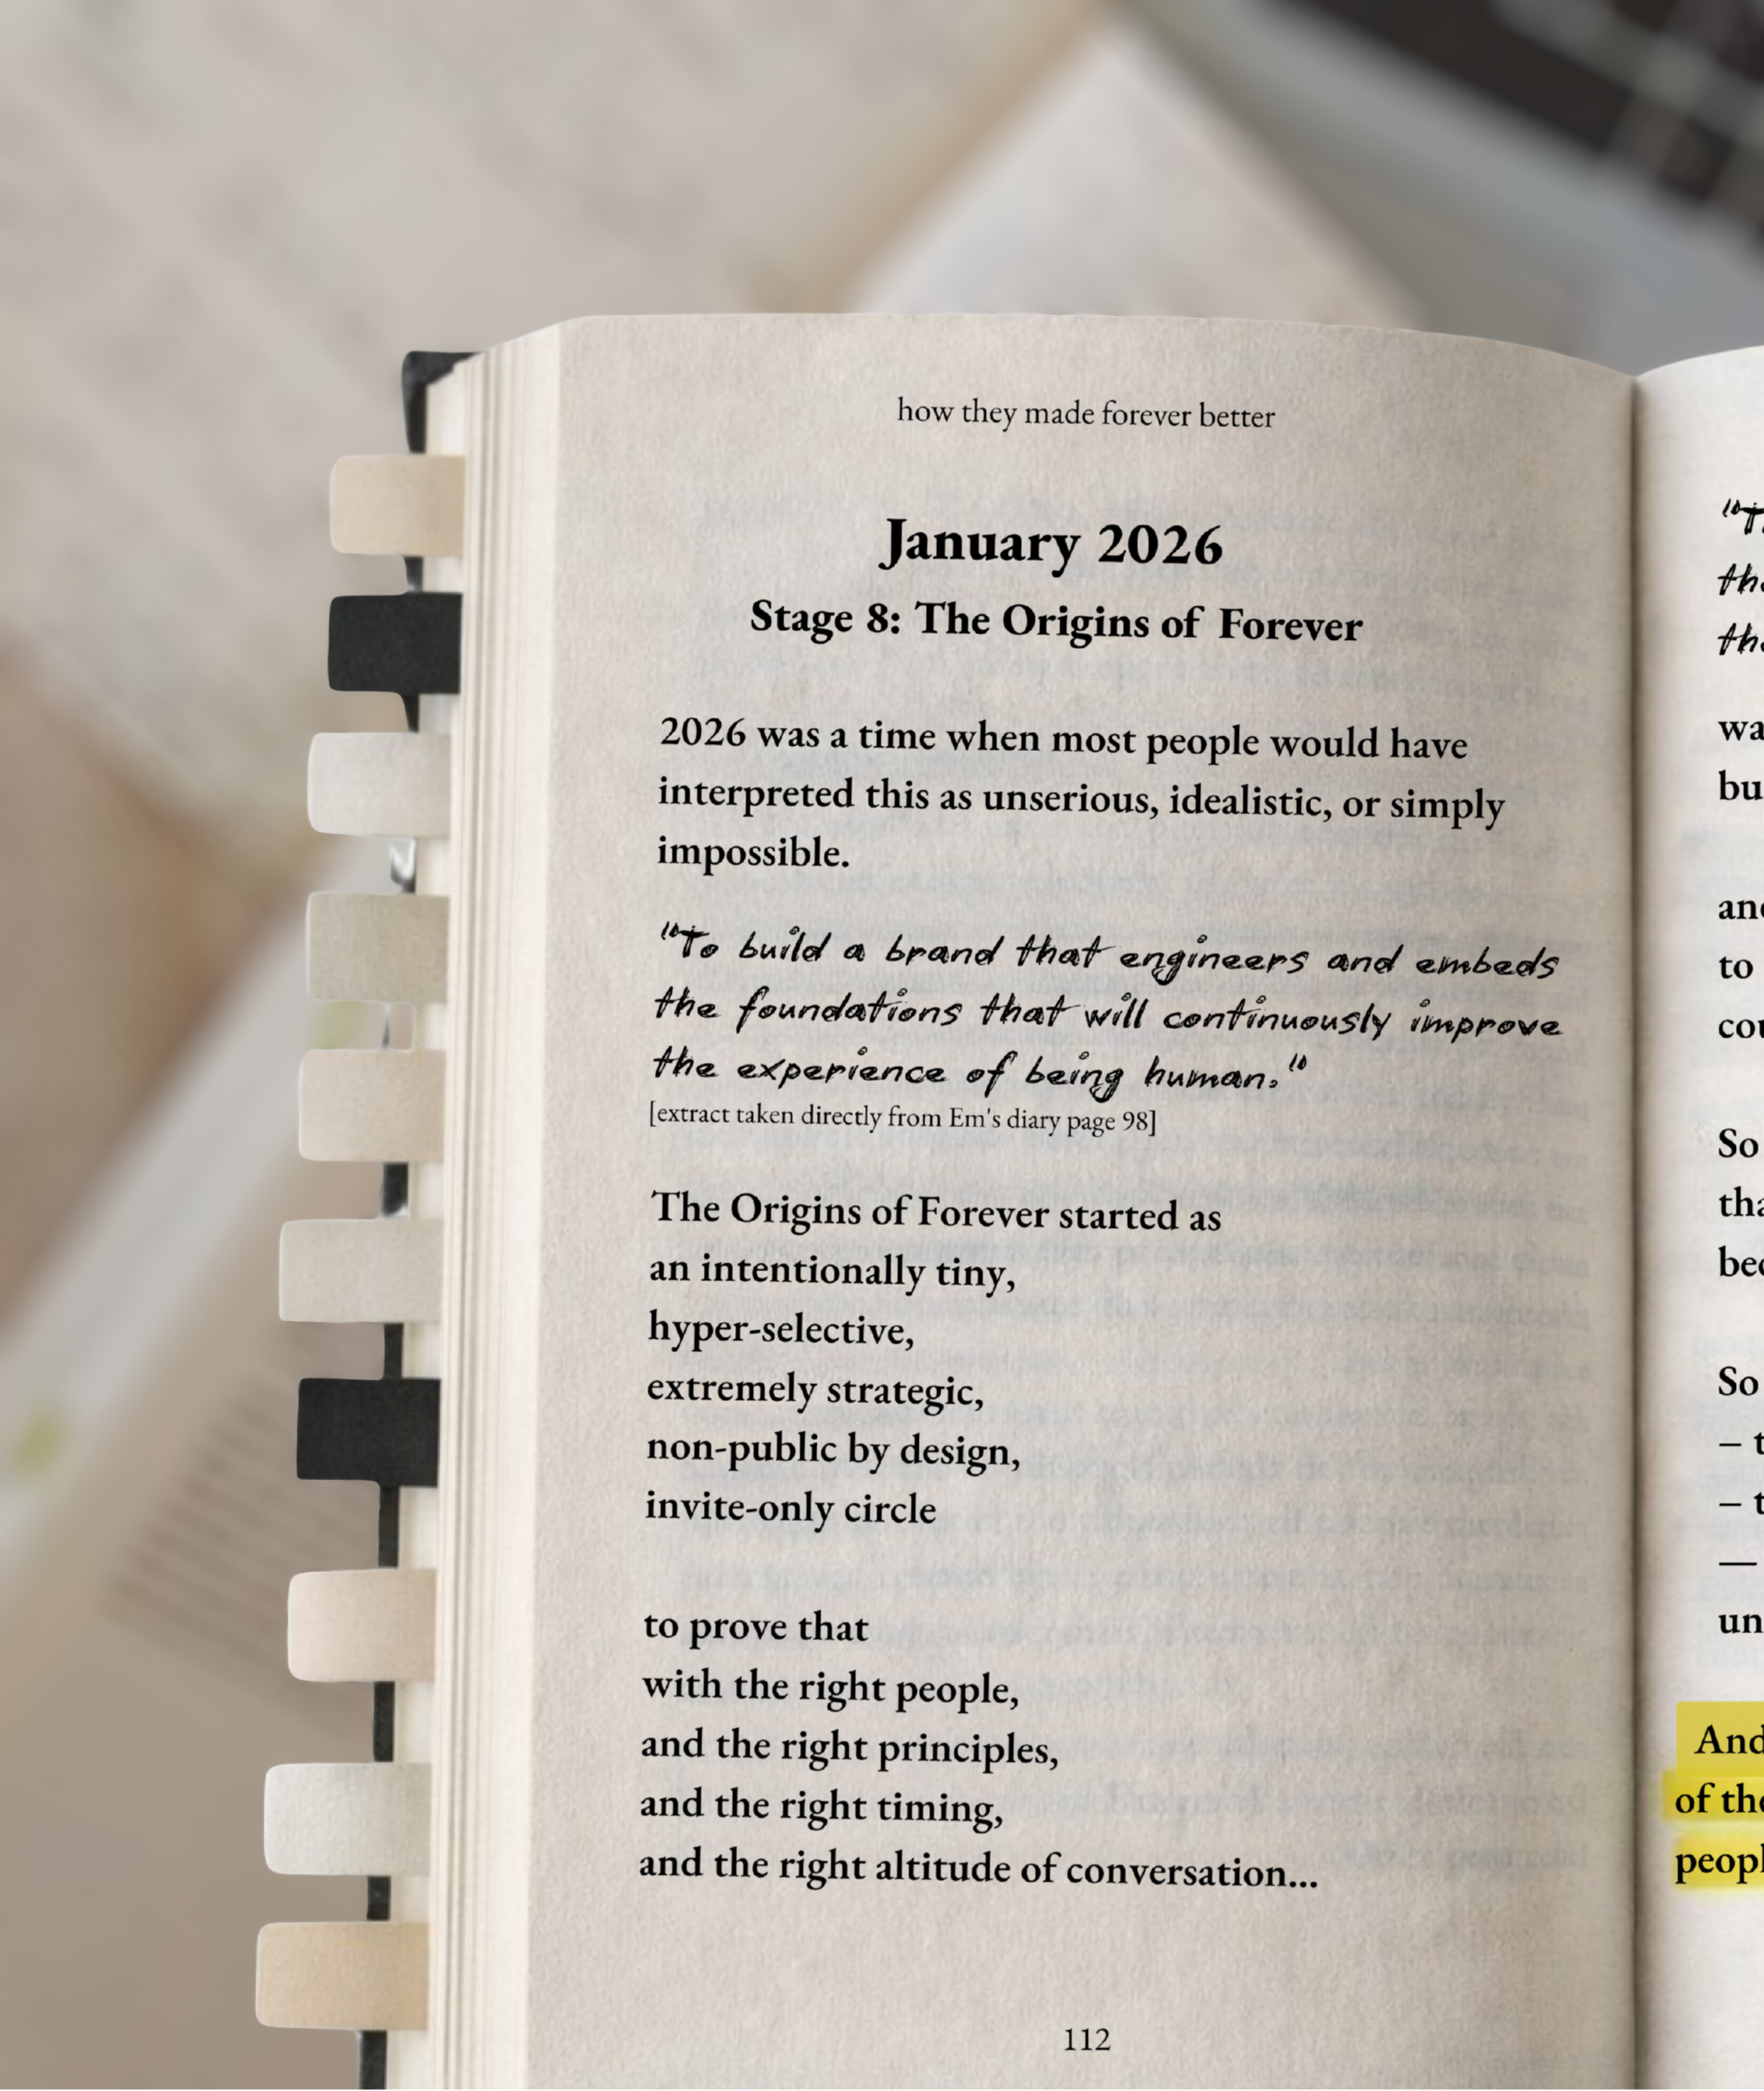 how they made forever better
January 2026
Stage 8: The Origins of Forever
2026 was a time when most people would have
interpreted this as unserious, idealistic, or simply
impossible.
"To build a brand that engineers and embeds
the foundations that will continuously improve
the experience of being human."
[extract taken directly from Em's diary page 98]
The Origins of Forever started as
an intentionally tiny,
hyper-selective,
extremely strategic,
non-public by design,
invite-only circle
to prove that
with the right people,
and the right principles,
and the right timing,
and the right altitude of conversation...
112
to
So
So
–
–
—
And
of the